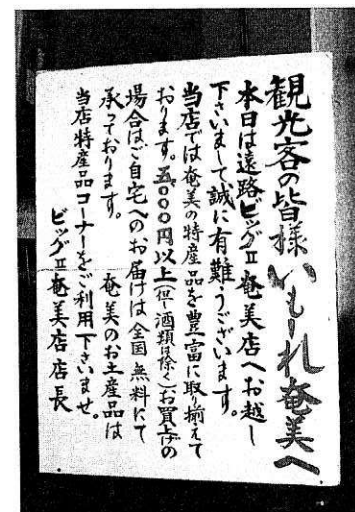 観光客の皆様 いもーれ奄美へ
本日は遠路ビッグⅡ奄美店へお越し
下さいまして誠に有難うございます。
当店では奄美の特産品を豊富に取り揃えて
おります。五〇〇〇円以上(但し酒類は除く)お買上げの
場合はご自宅へのお届けは全国無料にて
承っております。 奄美のお土産品は
当店特産品コーナーをご利用下さいませ。
ビッグⅡ奄美店 店長